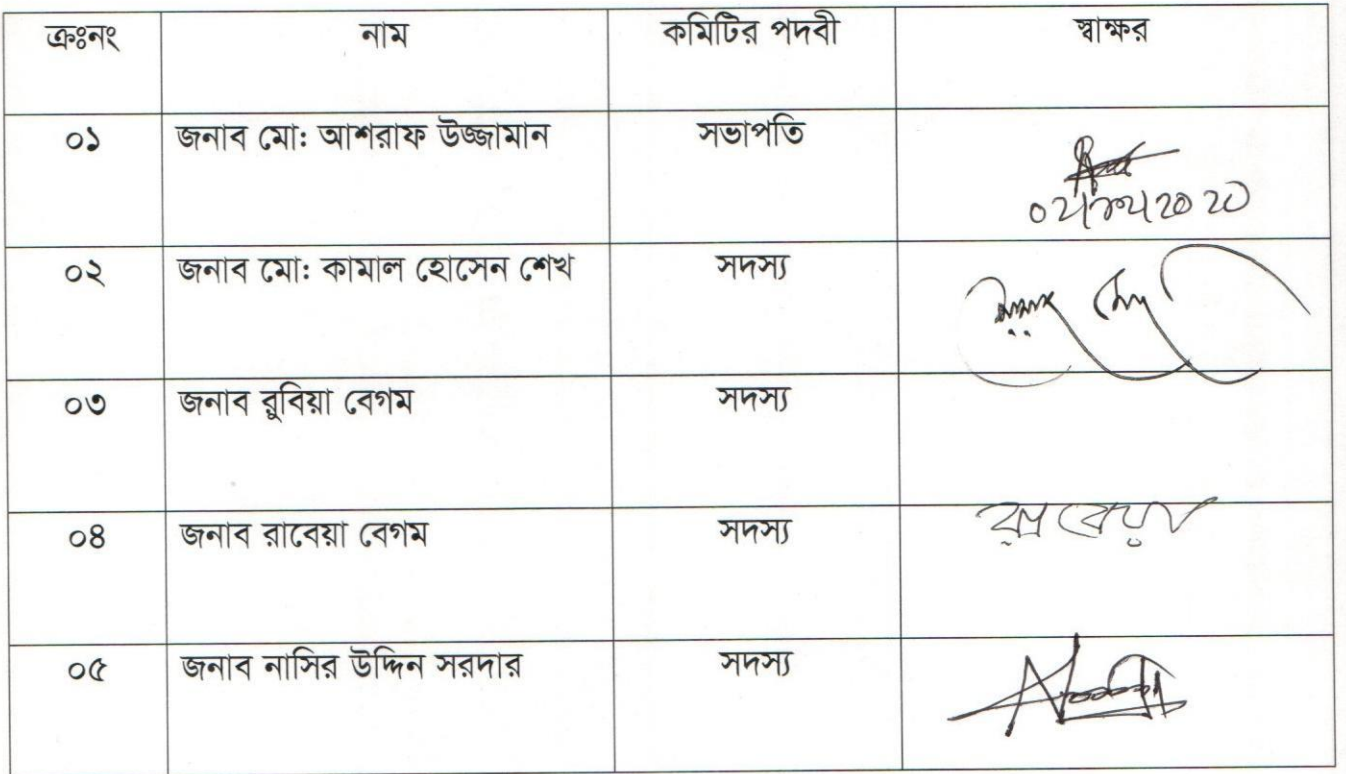 ক্রঃনং নাম কমিটির পদবী স্বাক্ষর
০১ জনাব মো: আশরাফ উজ্জামান সভাপতি
০২ জনাব মো: কামাল হোসেন শেখ সদস্য
০৩ জনাব রুবিয়া বেগম সদস্য
০৪ জনাব রাবেয়া বেগম সদস্য রাবেয়া
০৫ জনাব নাসির উদ্দিন সরদার সদস্য